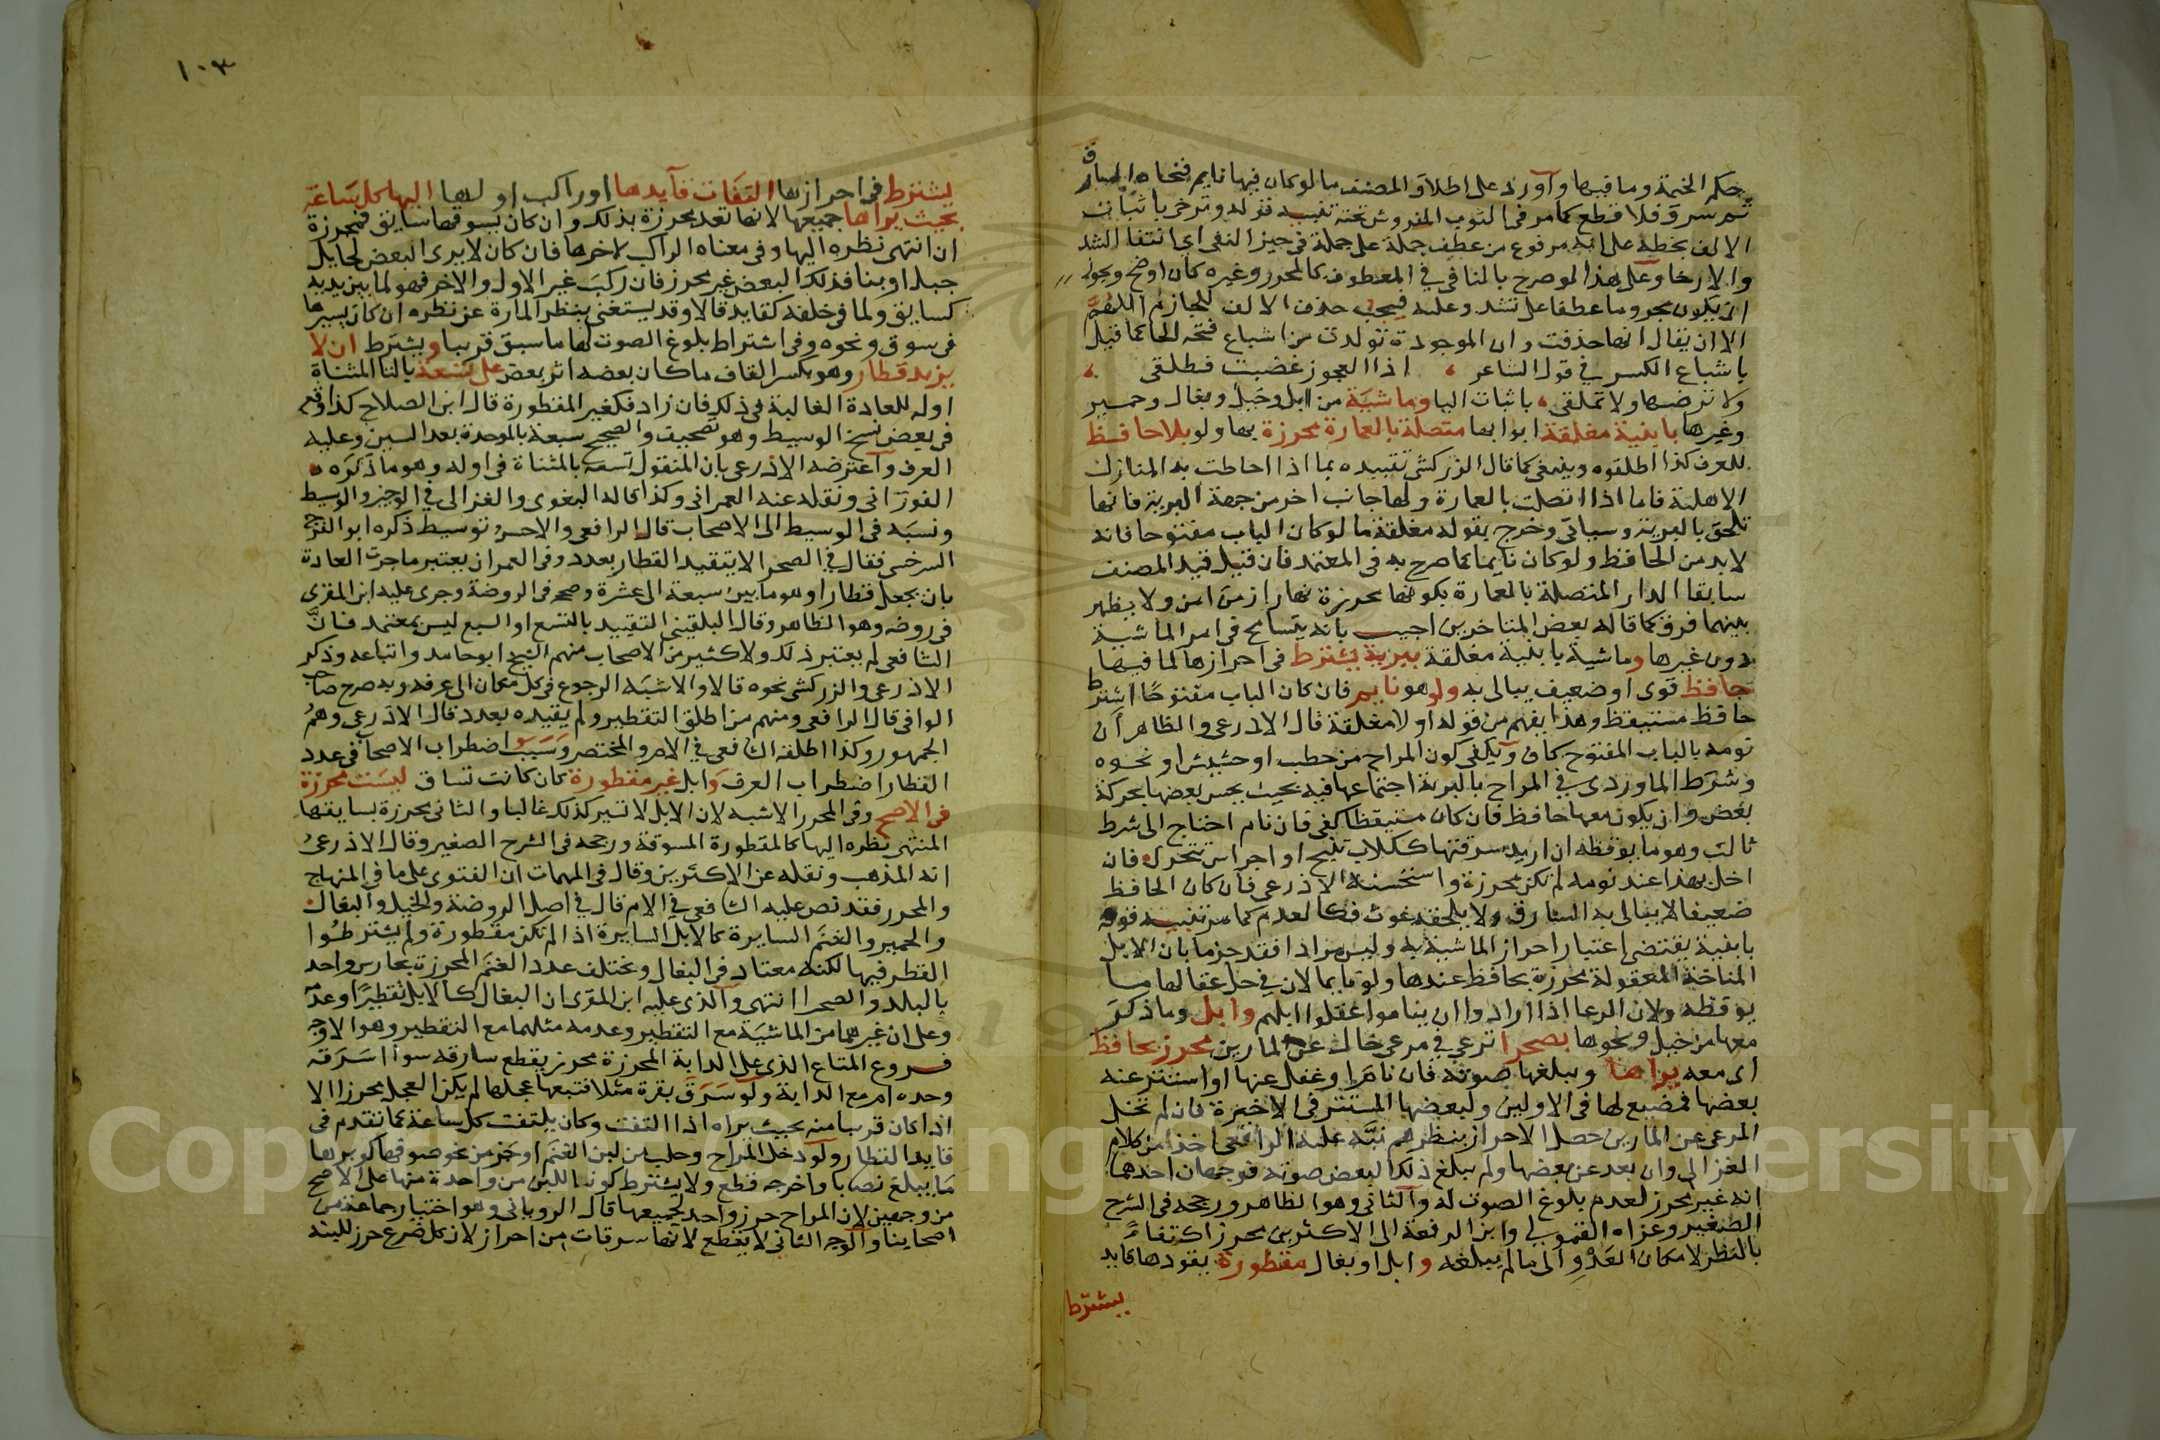 حكم الخيمة وما فيها وآورد على اطلاق المصنف ما لو كان فيها نايم فنحاه السارق
ثم سرق فلا قطع كما مر في الثوب المفروش تحته تنبيه قوله وترخى باثبات
الالف بخطه على انه مرفوع من عطف جملة على جملة في حيز النفي اي انتفا الشد
والارخا وعلى هذا الموصرح بالنافي في المعطوف كالمحرر وغيره كان اوضح ويجوز
ان يكون مجروما عطفا على تشد وعليه فيجب حذف الالف للجازم اللهم
الا ان يقال انها حذفت وان الموجودة تولدت من اشباع فتحه الخا كما قيل
باشباع الكسر في قول الشاعر اذا العجوز غضبت فطلقي
ولا ترضها ولا تملقي باثبات اليا وماشية من ابل وخيل وبغال وحمير
وغيرها بابنية مغلقة ابوابها متصلة بالعمارة محرزة بها ولو بلا حافظ
للعرف كذا اطلقوه وينبغي كما قال الزركشي تقييده بما اذا احاطت به المنازل
الاهلية فاما اذا اتصلت بالعمارة ولها جانب اخر من جهة البرية فانها
تلحق بالبرية وسياتي وخرج بقوله مغلقة ما لو كان الباب مفتوحا فانه
لابد من الحافظ ولو كان نايما كما صرح به في المعتمد فان قيل قيد المصنف
سابقا الدار المتصلة بالعمارة بكونها محرزة نهارا زمن امن ولا يظهر
بينهما فرق كما قاله بعض المتاخرين اجيب بانه يتسامح في امر الماشية
دون غيرها وماشية بابنية مغلقة ببرية يشترط في احرازها لما فيها
حافظ قوي او ضعيف يبالى به ولو هو نايم فان كان الباب مفتوحًا اشترط
حافظ مستيقظ وهذا يفهم من قوله اولا مغلقة قال الاذرعي والظاهر ان
نومه بالباب المفتوح كاف ويكفي كون المراح من حطب او حشيش او نحوه
وشرط الماوردي في المراح بالبرية اجتماعها فيه بحيث يحس بعضها بحركة
بعض وان يكون معها حافظ فان كان مستيقظا كفى فان نام احتاج الى شرط
ثالث وهو ما يوقظه ان اريد سرقتها ككلاب تنبح او اجراس تتحرك فان
اخل بهذا عند نومه لم تكن محرزة واستحسنه الاذرعي فان كان الحافظ
ضعيفا لا يبالى به السارق ولا يلحقه غوث فكالعدم كما مر تنبيه قوله
بابنية يقتضي اعتبار احراز الماشية به وليس مرادا فقد جزما بان الابل
المناخة المعقولة محرزة بحافظ عندها ولو نايما لان في حل عقالها ما
يوقظه ولان الرعا اذا ارادوا ان يناموا عقلوا ابلهم وابل وما ذكر
معها من خيل ونحوها بصحرا ترعى في مرعى خال عن المارين محرز بحافظ
اي معه يراها ويبلغها صوته فان نام او غفل عنها او استتر عنه
بعضها فمضيع لها في الاولين ولبعضها المستتر في الاخيرة فان لم تخل
المرعى عن المارين حصل الاحراز بنظرهم نبه عليه الرافعي اخذا من كلام
الغزالي وان بعد عن بعضها ولم يبلغ ذلك البعض صوته فوجهان احدهما
انه غير محرز لعدم بلوغ الصوت له والثاني وهو الظاهر ورجحه في الشرح
الصغير وعزاه القمولي وابن الرفعة الى الاكثرين محرز اكتفاءً
بالنظر لامكان العدْوِ الى ما لم يبلغه وابل او بغال مقطورة يقودها قايد
يشترط
١٠٣
يشترط في احرازها التفات قايدها او راكب اولها اليها كل ساعة
بحيث يراها جميعها لانها تعد محرزة بذلك وان كان يسوقها سايق فمحرزة
ان انتهى نظره اليها وفي معناه الراكب لاخرها فان كان لا يرى البعض لحايل
جبل او بنا فذلك البعض غير محرز فان ركب غير الاول والاخر فهو لما بين يديه
كسايق ولما في خلفه كقايد قالا وقد يستغني بنظر المارة عن نظره ان كان يسيرها
في سوق ونحوه وفي اشتراط بلوغ الصوت لها ما سبق قريبا ويشترط ان لا
يزيد قطار وهو بكسر القاف ما كان بعضه اثر بعض على تسعة بالتا المثناة
اوله للعادة الغالبة في ذلك فان زاد فكغير المقطورة قال ابن الصلاح كذا وقع
في بعض نسخ الوسيط وهو تصحيف والصحيح سبعة بالموحدة بعد السين وعليه
العرف وآعترضه الاذرعي بان المنقول تسعة بالمثناة في اوله وهو ما ذكره
الفوراني ونقله عنه العمراني وكذا قاله البغوي والغزالي في الوجيز والوسيط
ونسبه في الوسيط الى الاصحاب قال الرافعي والاحسن توسيط ذكره ابو الفرج
السرخسي فقال في الصحرا لا يتقيد القطار بعدد وفي العمران يعتبر ما جرت العادة
بان يجعل قطارا وهو ما بين سبعة الى عشرة وصححه في الروضة وجرى عليه ابن المقري
في روضه وهو الظاهر وقال البلقيني التقييد بالتسع او السبع ليس بمعتمد فانّ
الشافعي لم يعتبر ذلك ولا كثير من الاصحاب منهم الشيخ ابو حامد واتباعه وذكر
الاذرعي والزركشي نحوه قالا والاشبه الرجوع في كل مكان الى عرفه وبه صرح صاحب
الوافي قال الرافعي ومنهم من اطلق التقطير ولم يقيده بعدد قال الاذرعي وهمُ
الجمهور وكذا اطلقه الشافعي في الام والمختصر وسبب اضطراب الاصحاب في عدد
القطار اضطراب العرف وابل غير مقطورة كان كانت تساق ليست محرزة
في الاصح وفي المحرر الاشبه لان الابل لا تسير كذلك غالبا والثاني محرزة بسايقها
المنتهي نظره اليها كالمقطورة المسوقة ورجحه في الشرح الصغير وقال الاذرعيُ
انه المذهب ونقله عن الاكثرين وقال في المهمات ان الفتوى على ما في المنهاج
والمحرر فقد نص عليه الشافعي في الام قال في اصل الروضة والخيل والبغال
والحمير والغنم السايرة كالابل السايرة اذا لم تكن مقطورة ولم يشترطوا
القطر فيها لكنه معتاد في البغال ويختلف عدد الغنم المحرزة بحارس واحد
بالبلد والصحرا انتهى والذي عليه ابن المقري ان البغال كالابل تقطيرًا وعدمه
وعلى ان غيرهما من الماشية مع التقطير وعدمه مثلهما مع التقطير وهو الاوجه
فروع المتاع الذي على الدابة المحرزة محرز يقطع سارقه سوا اسَرَقه
وحده ام مع الدابة ولو سَرَقَ بقرة مثلا فتبعها عجلها لم يكن العجل محرزا الا
اذا كان قريبا منه بحيث يراه اذا التفت وكان يلتفت كل ساعة كما تقدم في
قايد القطار ولو دخل المراح وحلب من لبن الغنم او جز من نحو صوفها كوبرها
ما يبلغ نصابا واخرجه قطع ولا يشترط كون اللبن من واحدة منها على الاصح
من وجهين لان المراح حرز واحد لجميعها قال الروياني وهو اختيار جماعة من
اصحابنا والوجه الثاني لا يقطع لانها سرقات من احراز لان كل ضرع حرز للبنه